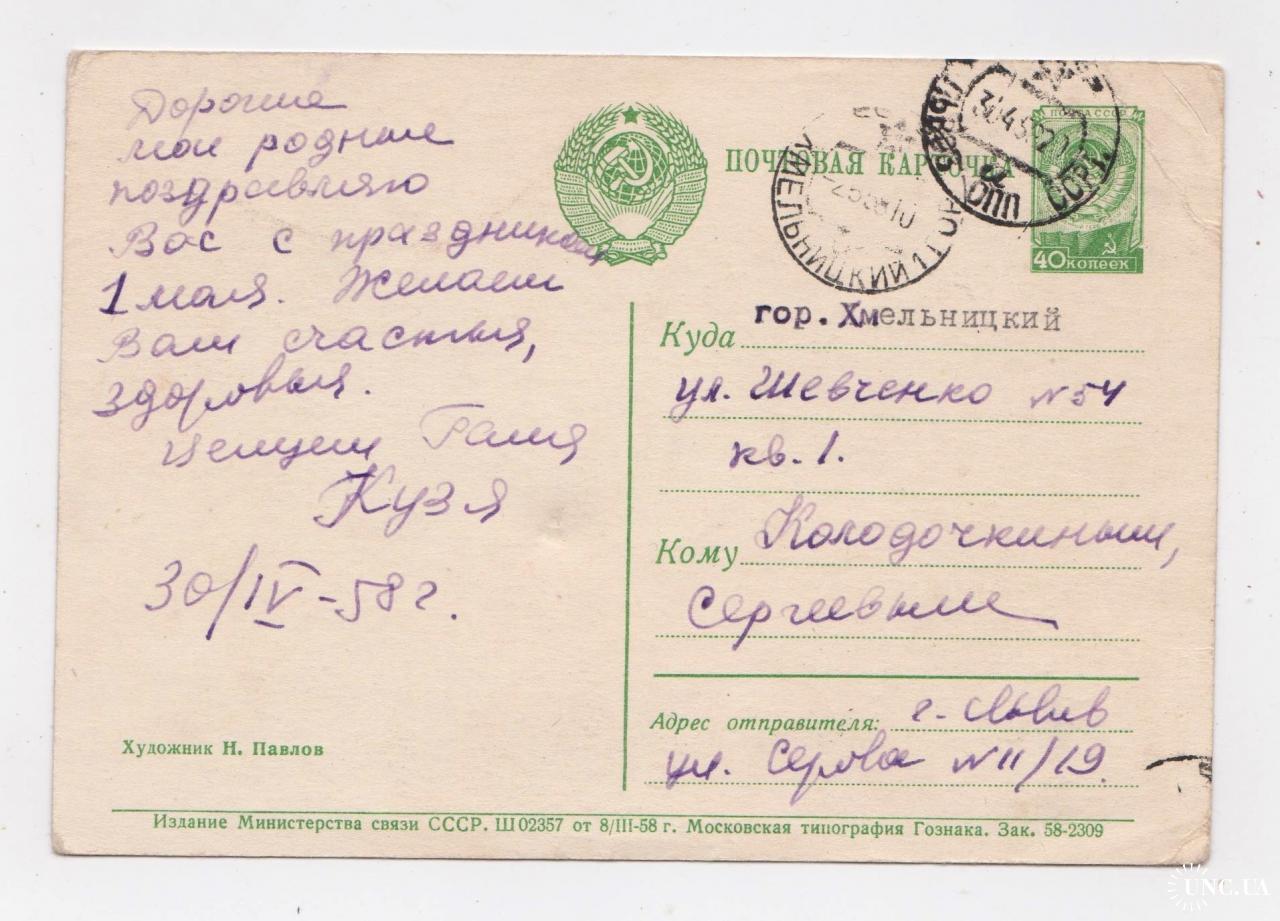 Дорогие
мои родные
поздравляю
Вас с праздником
1 мая. Желаем
Вам счастья,
здоровья.
Целуем Галя
Кузя
30/IV-58 г.
Художник Н. Павлов
ПОЧТОВАЯ КАРТОЧКА
ПОЧТА СССР
40 КОПЕЕК
ХМЕЛЬНИЦКИЙ
Куда гор. Хмельницкий
ул. Шевченко №54
кв. 1.
Кому Колодочкиным,
Сергеевым
Адрес отправителя: г. Львов
ул. Серова №11/19.
Издание Министерства связи СССР. Ш02357 от 8/III-58 г. Московская типография Гознака. Зак. 58-2309
UNC.UA